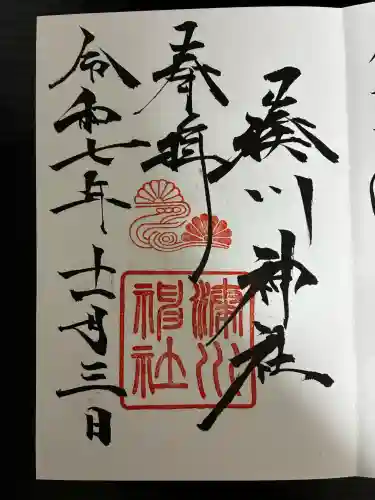 湊川神社
奉拝
令和七年十一月三日
湊川
神社